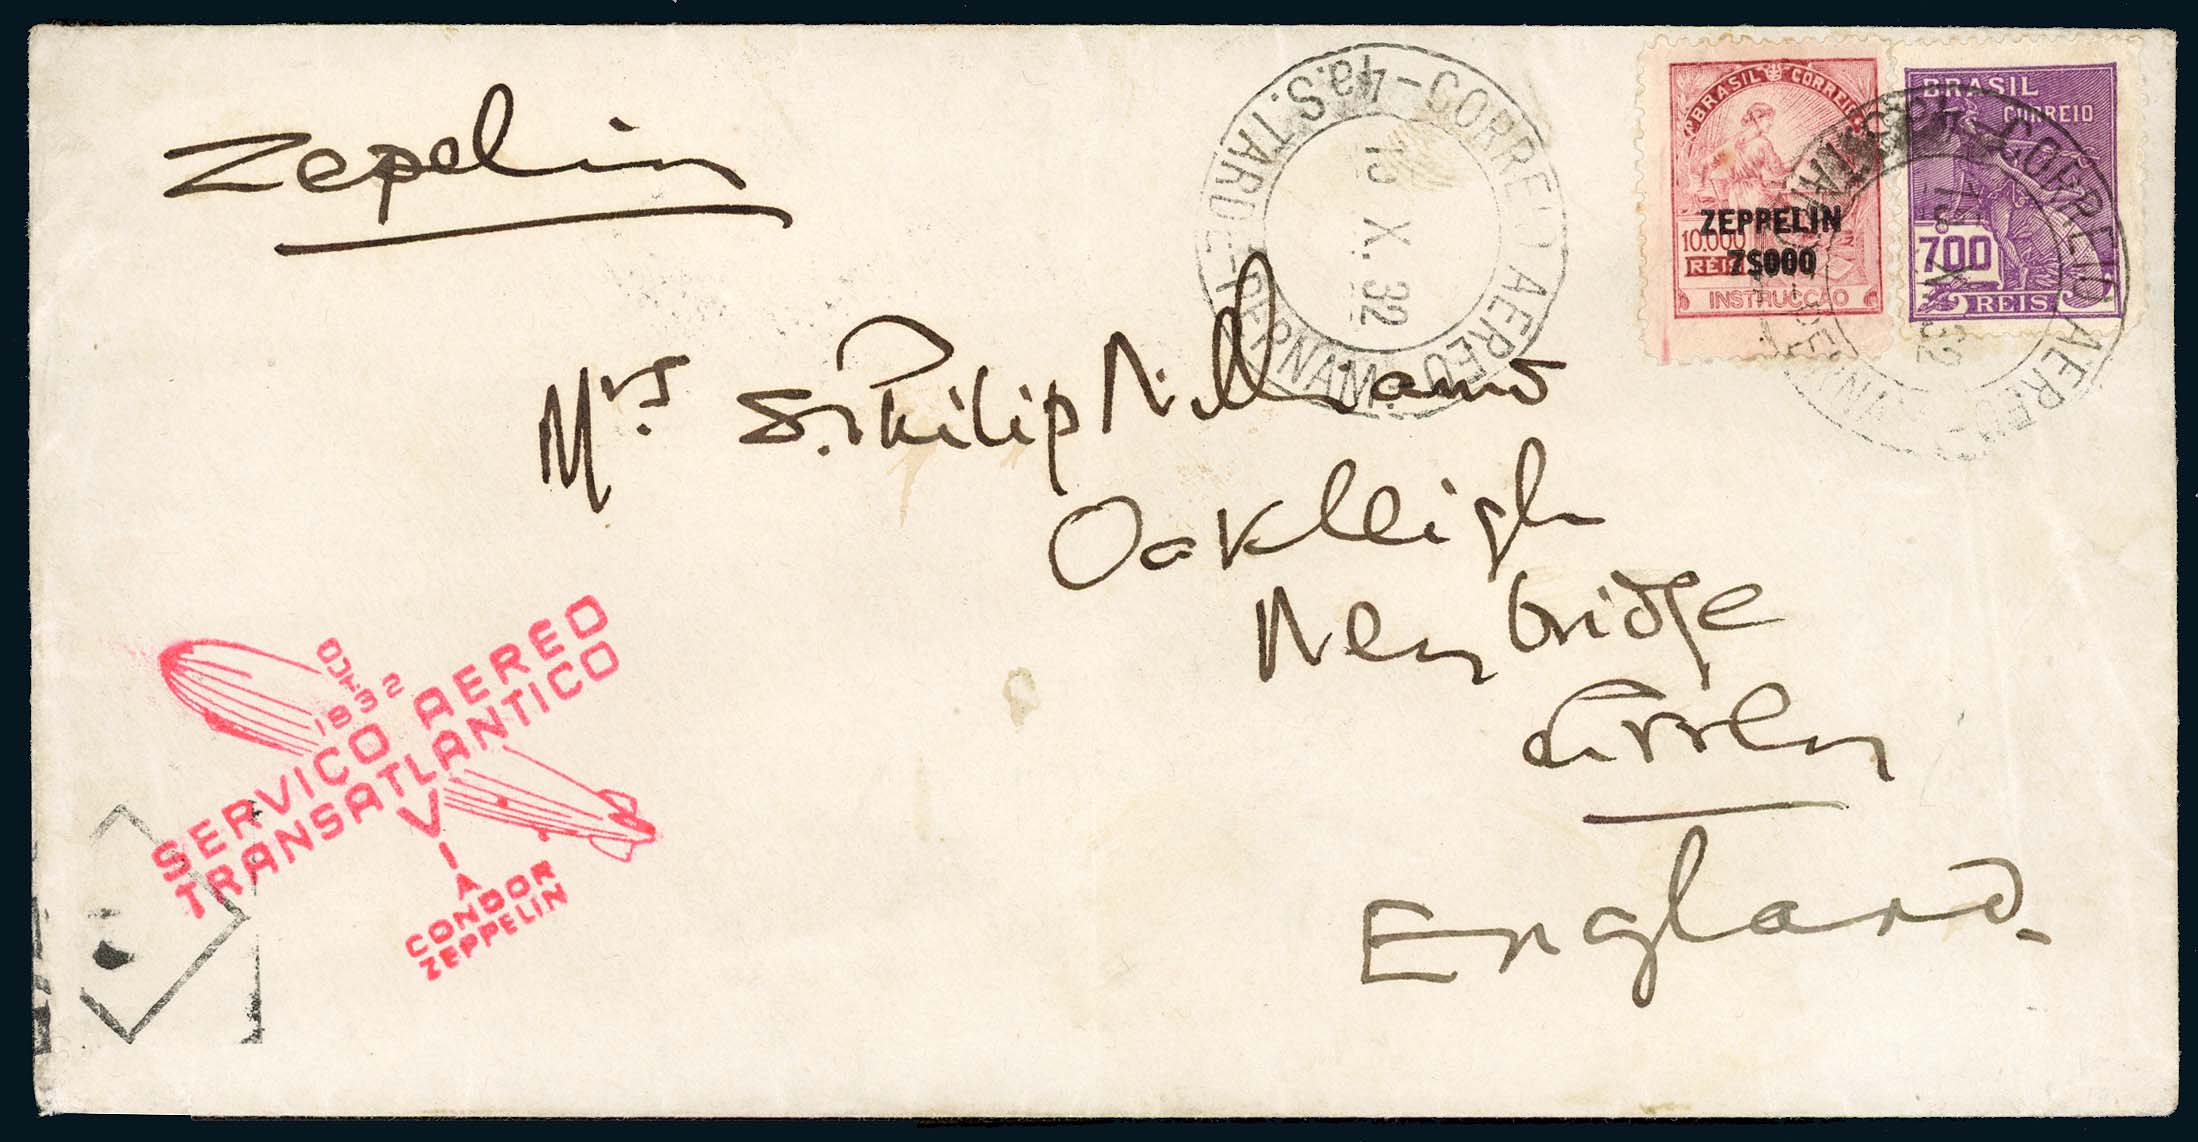 Zepelin
4a.S. TARDE - PERNAM. - CORREIO AEREO -
X. 32
BRASIL CORREIO
ZEPPELIN
10.000
REIS
7$000
INSTRUCÇÃO
BRASIL
CORREIO
700
REIS
CORREIO AEREO
Mrs S. Philip Williams
Oakleigh
Newbridge
England.
OUT.
1932
SERVICO AEREO
TRANSATLANTICO
VIA
CONDOR
ZEPPELIN